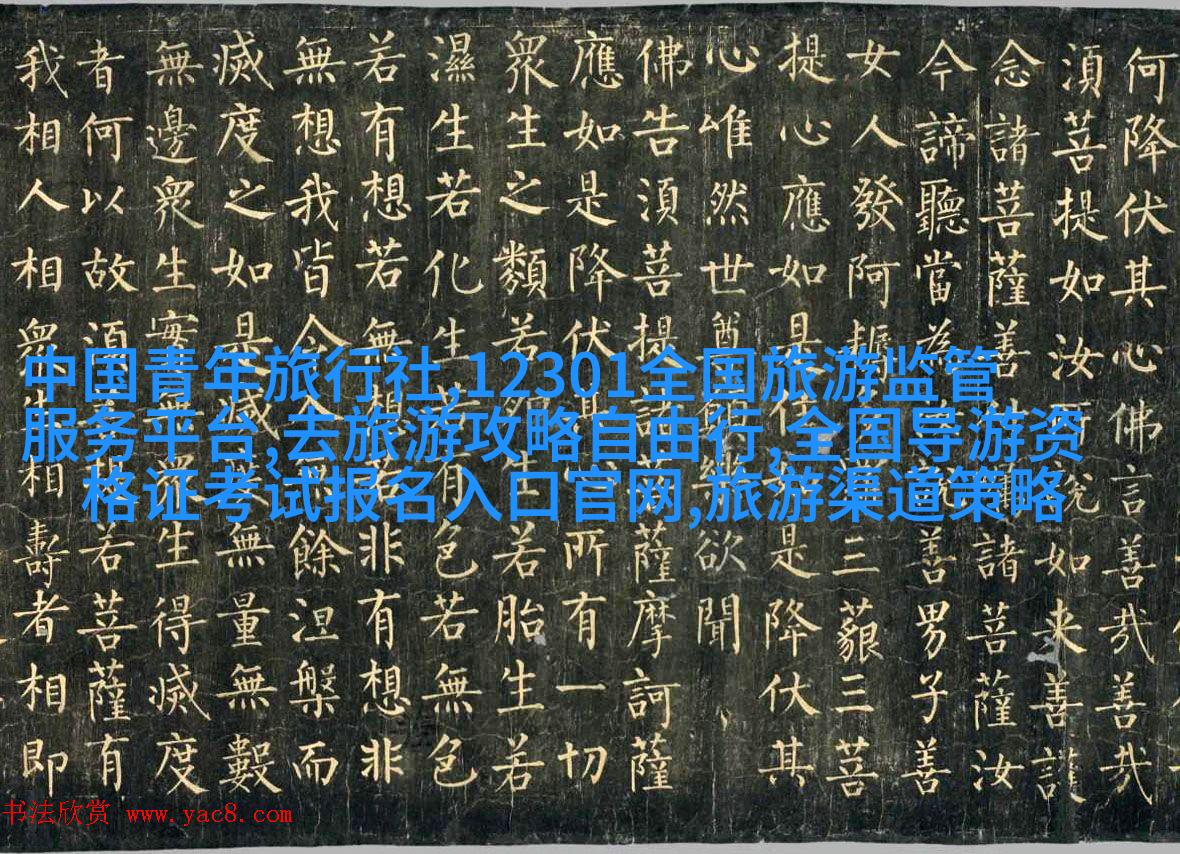 何降伏其心佛言善哉善哉
須菩提如汝說如来善護
念諸菩薩善諸菩薩汝
今諦聽當為善男子善
女人發阿耨三藐三菩
提心應如是住是降伏其
心唯然世尊欲聞
佛告須菩提諸薩摩訶薩
應如是降伏其所有一切
眾生之類若生若胎生若
濕生若化生若有色若無色
若有想若無想非有想非
無想我皆令餘涅槃而
滅度之如是滅無量無數
無邊眾生實無眾生得滅度
者何以故須若菩薩有
我相人相眾生相壽者相即
中国青年旅行社,12301全国旅游监管
服务平台,去旅游攻略自由行,全国导游资
格证考试报名入口官网,旅游渠道策略
书法欣赏 www.yac8.com